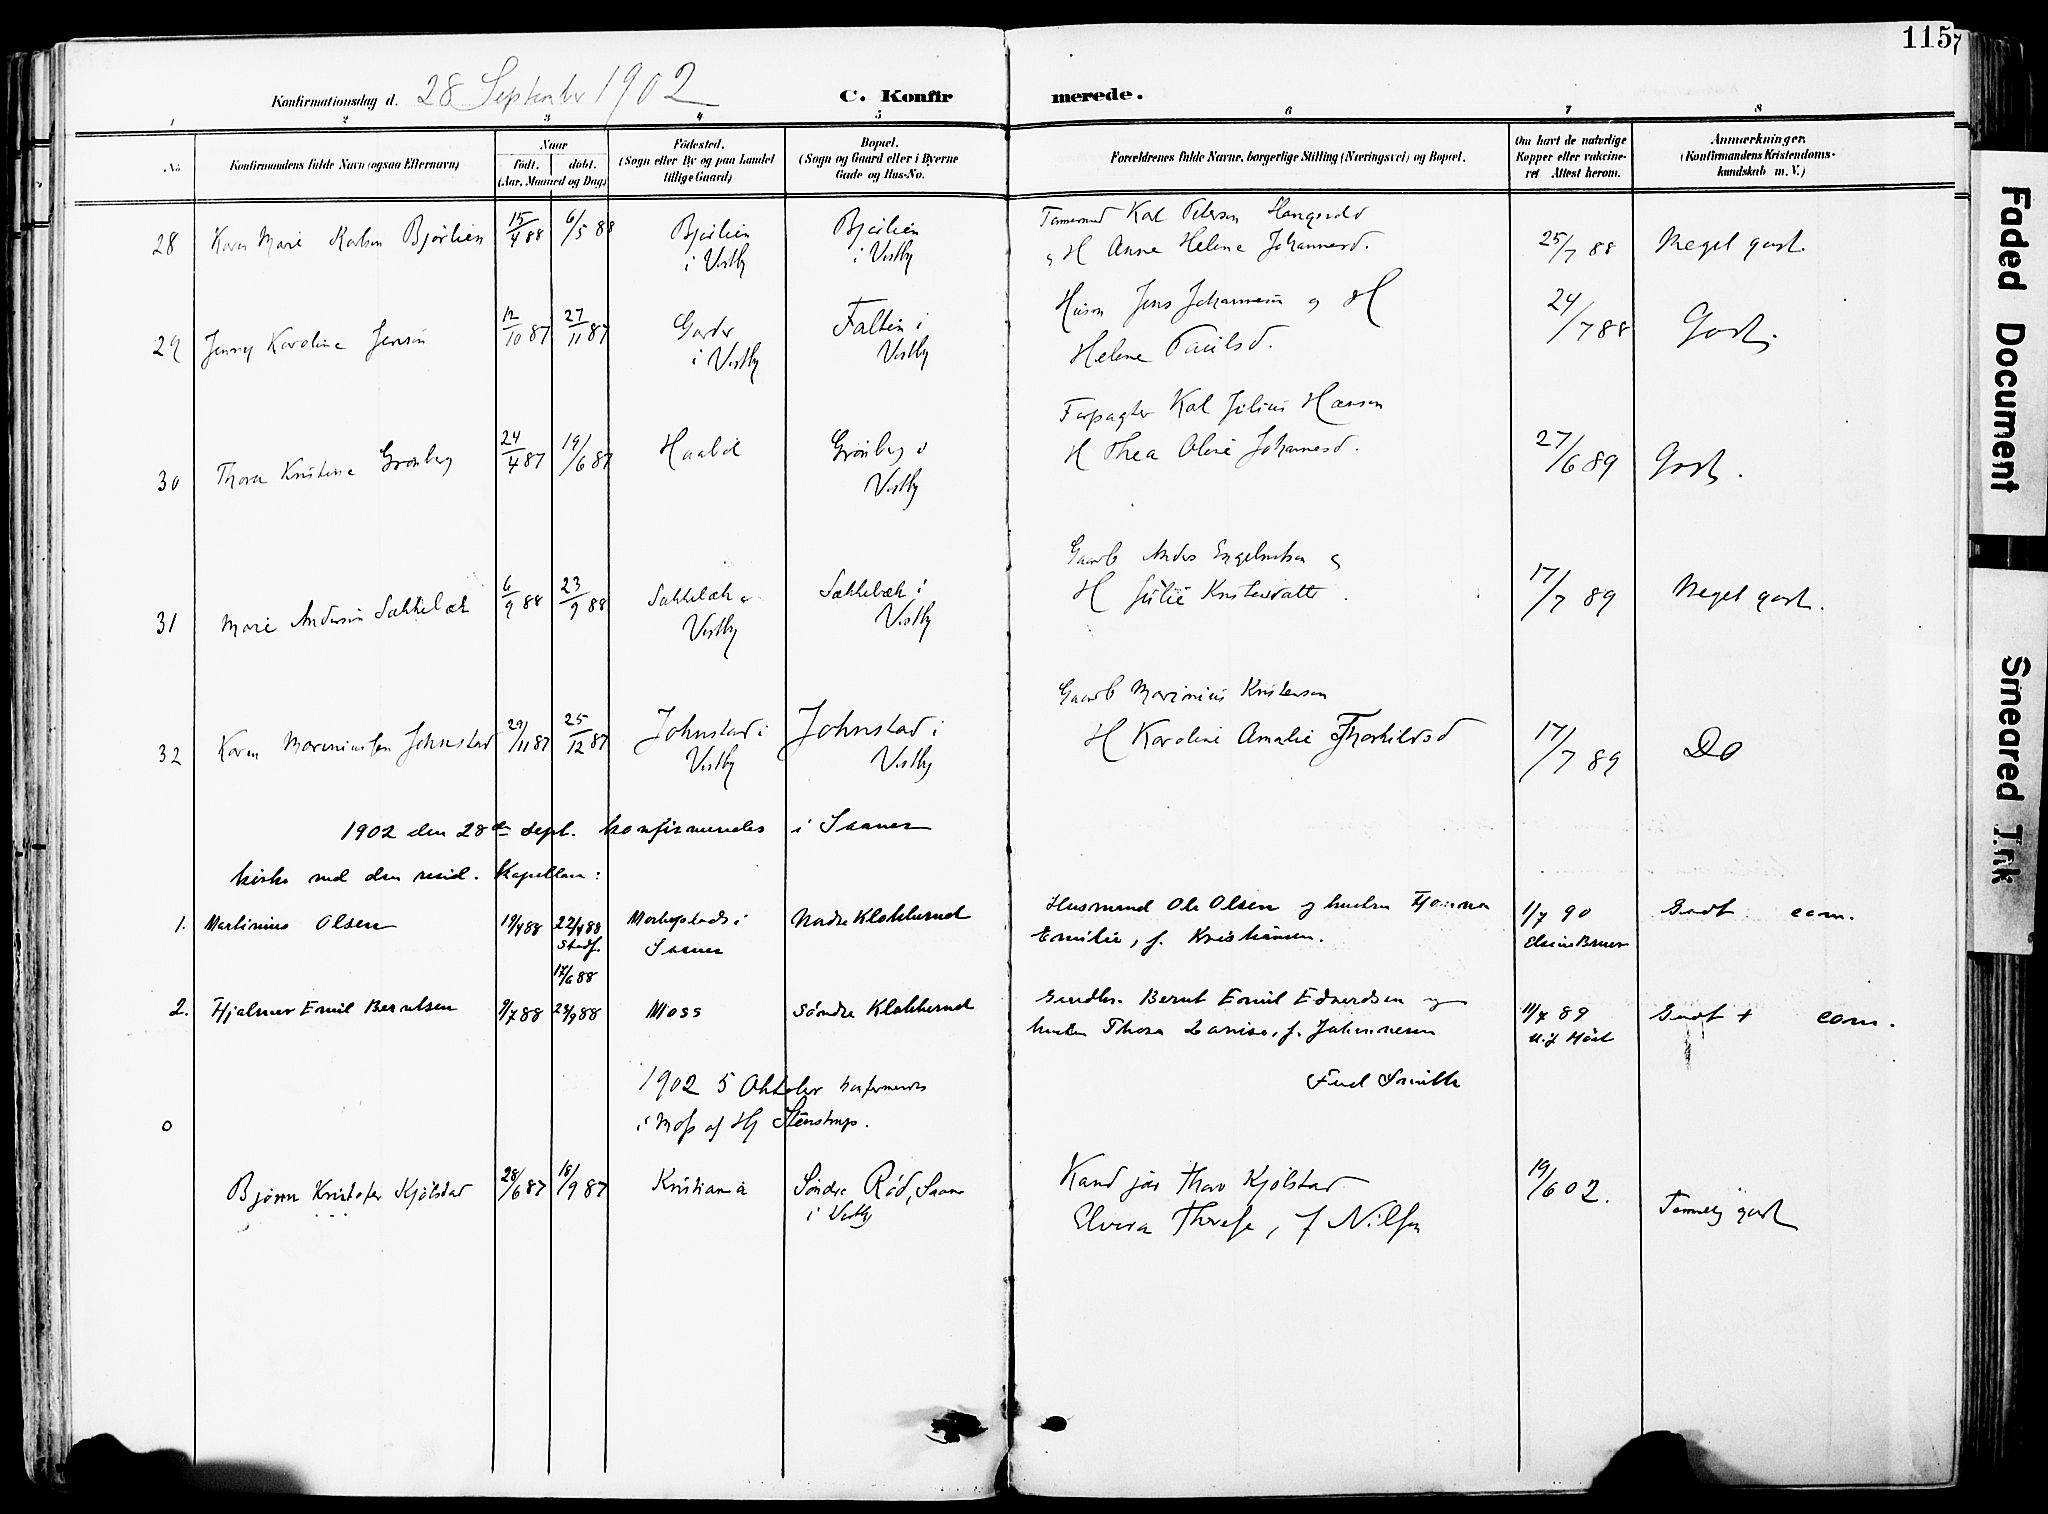 115
Konfirmationsdag d. 28 September 1902
C. Konfirmerede.
1 2 3 4 5 6 7 8
No.
Konfirmandens fulde Navn (ogsaa Efternavn)
Naar
født. døbt.
(Aar, Maaned og Dag)
Fødested.
(Sogn eller By og paa Landet
tillige Gaard)
Bopæl.
(Sogn og Gaard eller i Byerne
Gade og Hus-No.
Forældrenes fulde Navne, borgerlige Stilling (Næringsvei) og Bopæl.
Om havt de naturlige
Kopper eller vakcine-
ret Attest herom.
Anmærkninger.
(Konfirmandens Kristendoms-
kundskab m. V.)
28 Karen Marie Karlsen Bjørlien 15/4 88 6/5 88 Bjørlien Bjørlien Tømmermd Karl Petersen
i Vestby i Vestby og H Anne Helene Johannesd. 25/7 88 Meget godt.
29 Jenny Karoline Jensen 12/10 87 27/11 87 Garder Faltin i Husm Jens Johannesen og H 24/7 88 Godt.
i Vestby Vestby Helene Paulsd.
Forpagter Karl Julius Hansen
30 Thora Kristine Grønberg 24/4 87 19/6 87 Haabøl Grønberg i H Thea Oline Johannesd. 27/6 89 Godt.
Vestby
Gaardb Anders Engebretsen og
31 Marie Andersen Sækkelæk 6/9 88 23/9 88 Sækkelæk Sækkelæk i H Julie Kristensdatter 17/7 89 Meget godt.
Vestby Vestby
Gaardb Marinius Kristensen
32 Karen Mariniussen Johnstad 29/11 87 25/12 87 Johnstad i Johnstad i H Karoline Amalie Thorkildsd 17/7 89 Do
Vestby Vestby
1902 den 28de Sept. konfirmeredes i Saaner
kirke ved den resid. Kapellan:
1. Martinius Olsen 19/4 88 22/4 88 i Nordre Klokkerud Husmand Ole Olsen og hustru
stadf. Saaner Emilie, f. Kristiansen. 1/7 90 Godt com.
17/6 88
2. Hjalmar Emil Berntsen 9/7 88 24/9 88 Moss Søndre Klokkerud Bernt Emil Edvardsen og
hustru Thora Lovise, f. Johannesen 11/7 89 Godt + com.
1902 5 Oktober konfirmeres
Fred Smith
0 i Moss af Hj Stenstrup.
Bjørn Kristofer Kjølstad 28/6 87 18/9 87 Kristiania Søndre Rød, Saaner Kand jur Thor Kjølstad 19/6 02.
i Vestby Elvira Therese, f Nilsen Temmelig godt
Faded Document
Smeared Ink